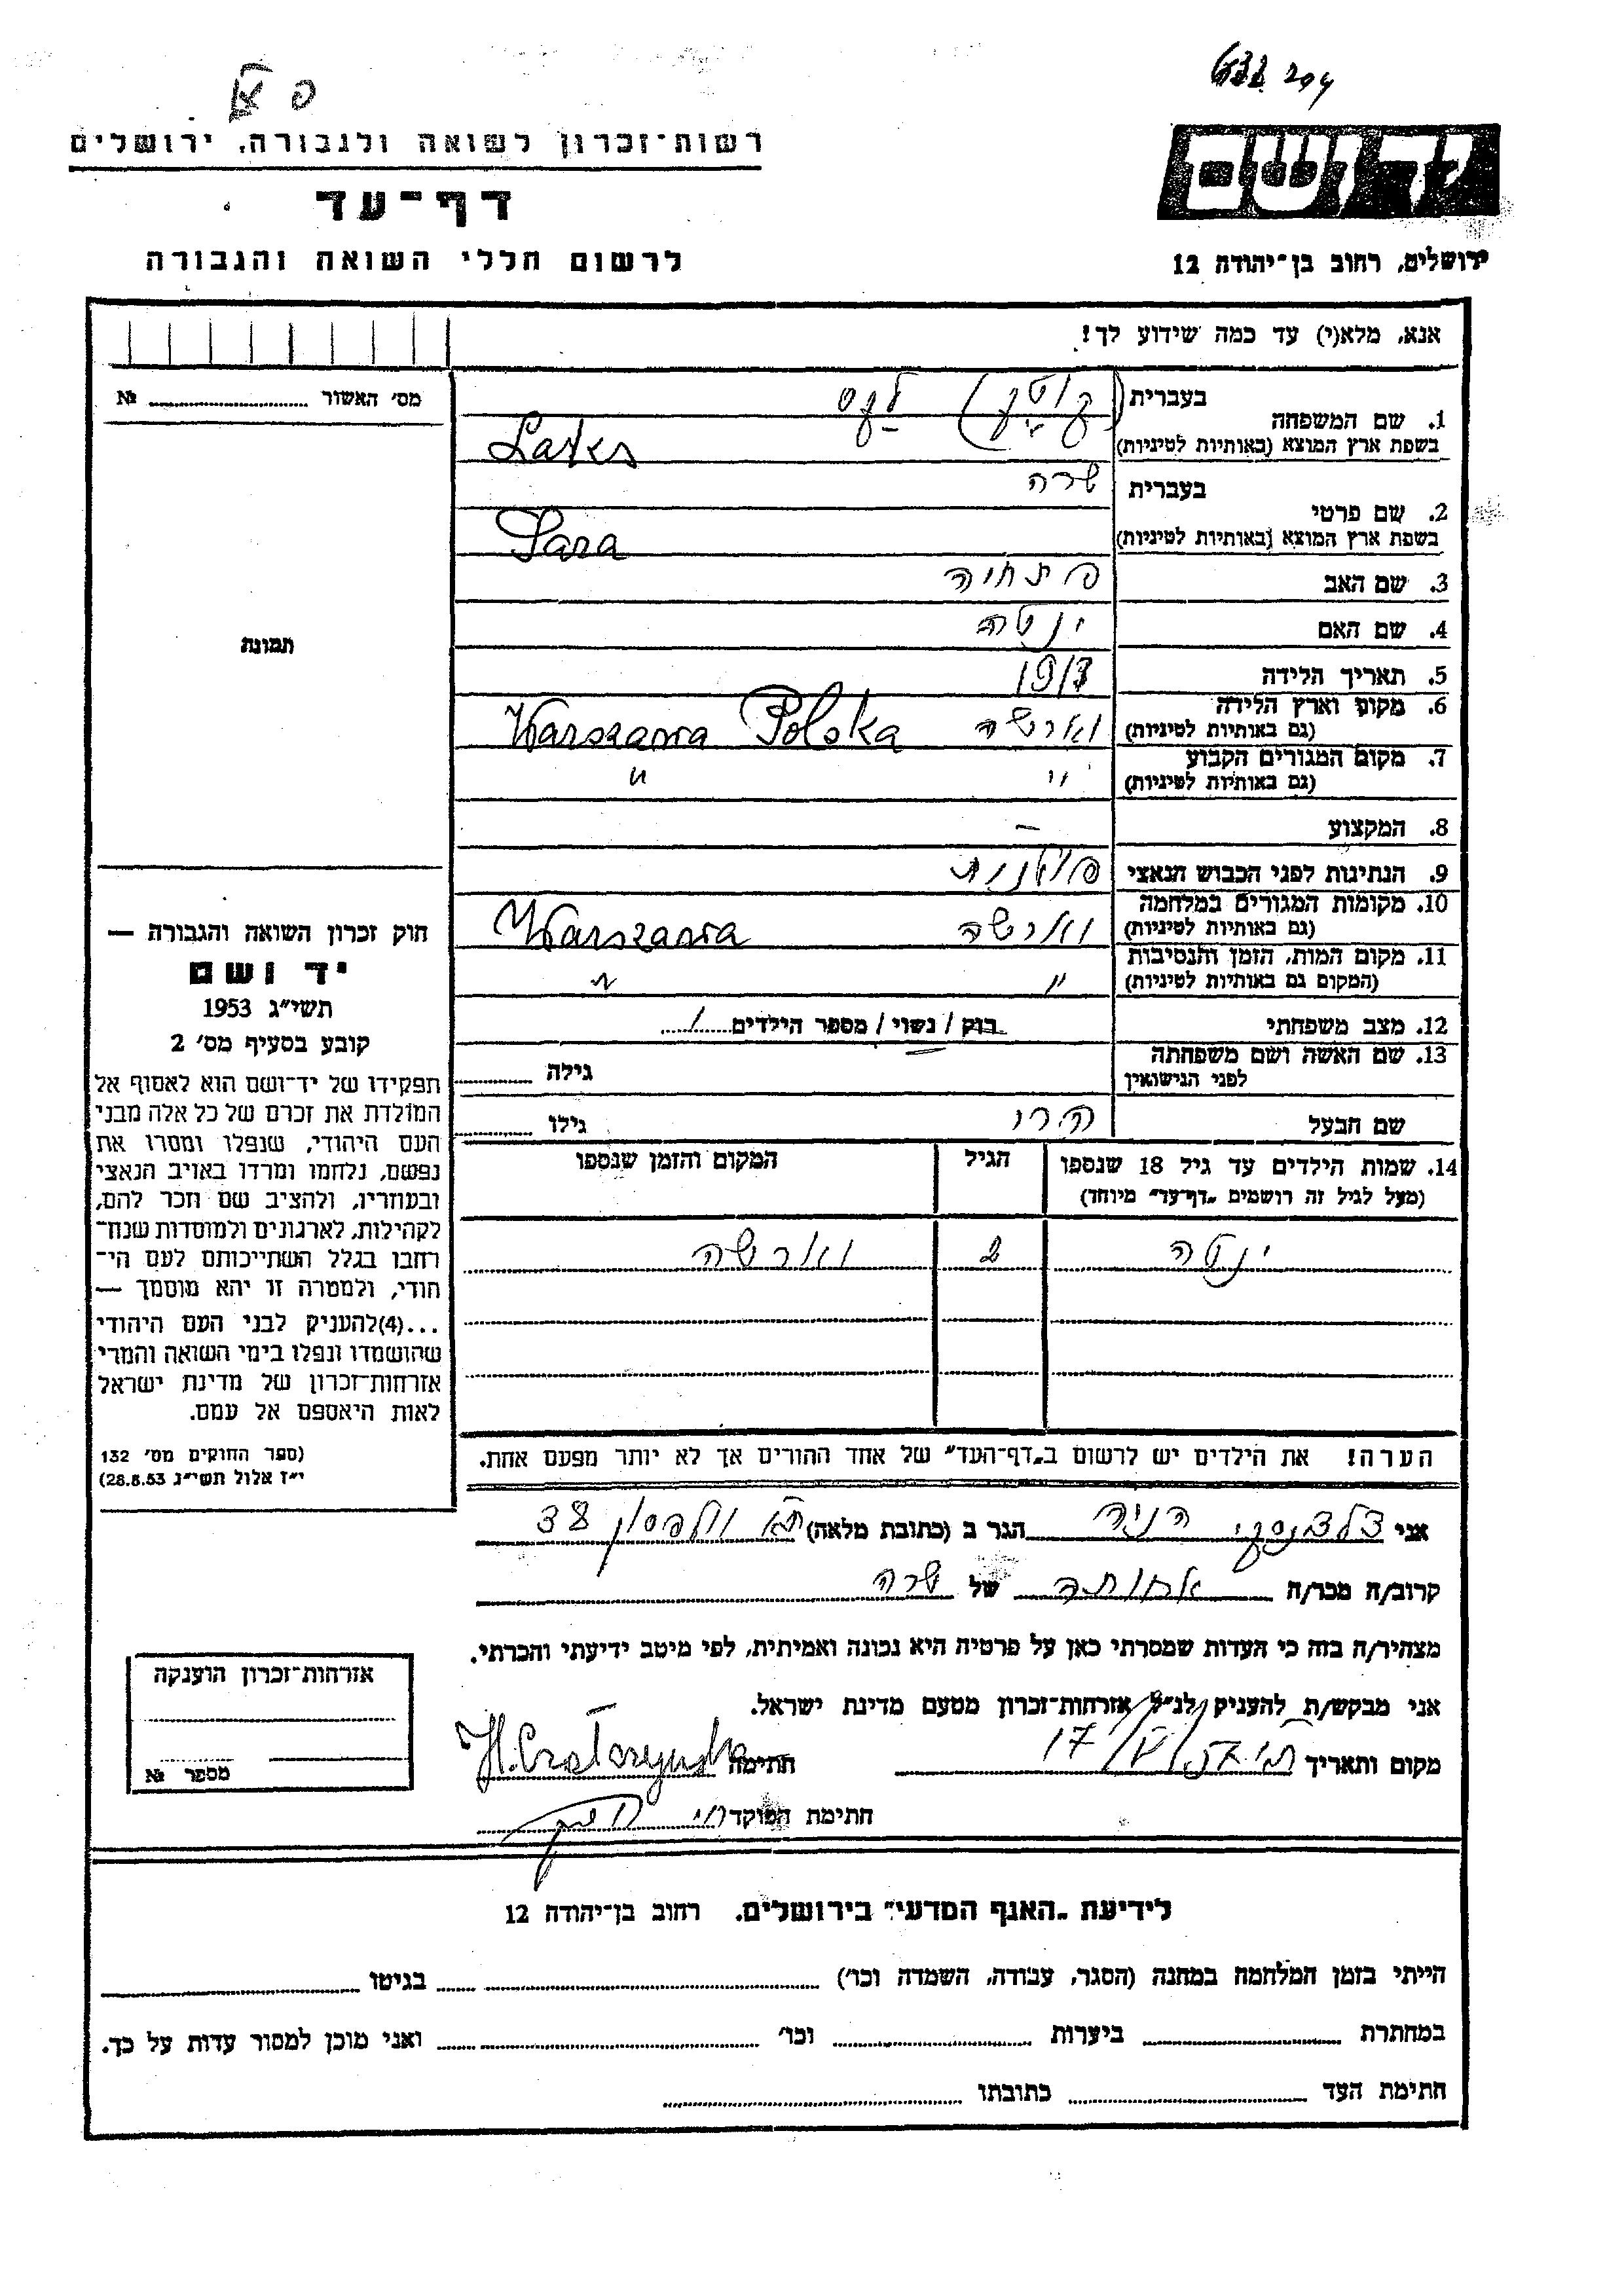 רשות-זכרון לשואה ולגבורה, ירושלים
דף-עד
לרשום חללי השואה והגבורה
יד ושם
ירושלים, רחוב בן-יהודה 12
אנא, מלא(י) עד כמה שידוע לך!
מס׳ האשור № 
תמונת
חוק זכרון השואה והגבורה —
יד ושם
תשי״ג 1953
קובע בסעיף מס׳ 2
תפקידו של יד-ושם הוא לאסוף אל
המולדת את זכרם של כל אלה מבני
העם היהודי, שנפלו ומסרו את
נפשם, נלחמו ומרדו באויב הנאצי
ובעוזריו, ולהציב שם וזכר להם,
לקהילות, לארגונים ולמוסדות שנח-
רחבו בגלל השתייכותם לעם הי-
הודי, ולמטרה זו יהא מוסמך —
...(4)להעניק לבני העם היהודי
שהושמדו ונפלו בימי השואה והמרי
אזרחות-זכרון של מדינת ישראל
לאות היאספם אל עמם.
(ספר החוקים מס׳ 132
י״ז אלול תשי״ג 28.8.53)
1. שם המשפחה בעברית לקס
בשפת ארץ המוצא (באותיות לטיניות) Laks
2. שם פרטי בעברית שרה
בשפת ארץ המוצא (באותיות לטיניות) Sara
3. שם האב פתחיה
4. שם האם ינטה
5. תאריך הלידה
6. מקום וארץ הלידה (גם באותיות לטיניות) וארשה Warszawa Polska
7. מקום המגורים הקבוע (גם באותיות לטיניות) " "
8. המקצוע —
9. הנתינות לפני הכבוש הנאצי פולנית
10. מקומות המגורים במלחמה (גם באותיות לטיניות) וארשה Warszawa
11. מקום המות, הזמן והנסיבות (המקום גם באותיות לטיניות) " "
12. מצב משפחתי רווק / נשוי / מספר הילדים 1
13. שם האשה ושם משפחתה לפני הנישואין גילה
שם הבעל גילו
14. שמות הילדים עד גיל 18 שנספו הגיל המקום והזמן שנספו
(מעל לגיל זה רושמים „דף-עד״ מיוחד)
ינטה 2 וארשה
הערה! את הילדים יש לרשום ב„דף-העד״ של אחד ההורים אך לא יותר מפעם אחת.
אני הניה הגר ב (כתובת מלאה) ת״א וולפסון 38
קרוב/ה מכר/ה אחותה של שרה
מצהיר/ה בזה כי העדות שמסרתי כאן על פרטיה היא נכונה ואמיתית, לפי מיטב ידיעתי והכרתי.
אני מבקש/ת להעניק לנ״ל אזרחות-זכרון מטעם מדינת ישראל.
מקום ותאריך חתימה
חתימת הפוקד
אזרחות-זכרון הוענקה
מספר №
לידיעת „האגף המדעי״ בירושלים, רחוב בן-יהודה 12
הייתי בזמן המלחמה במחנה (הסגר, עבודה, השמדה וכו׳) בגיטו
במחתרת ביערות וכו׳ ואני מוכן למסור עדות על כך.
חתימת העד כתובתו